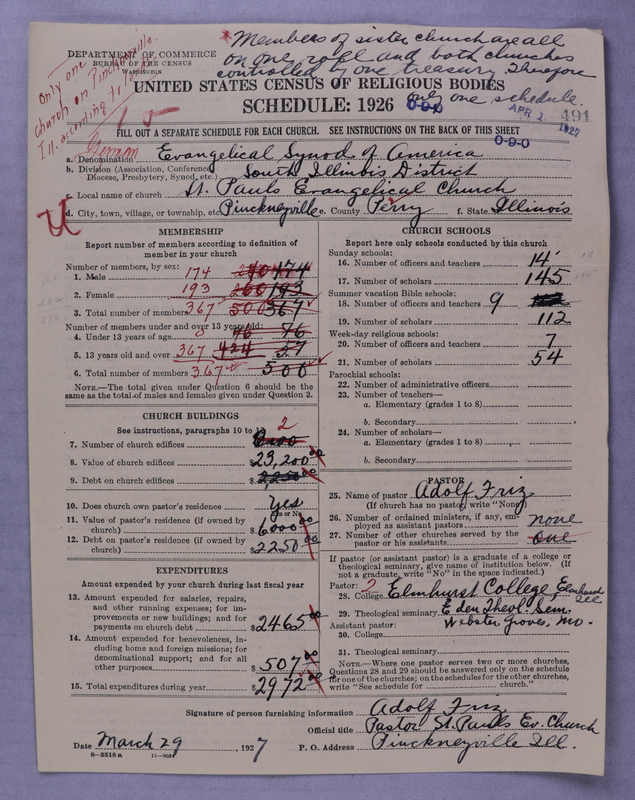 DEPARTMENT OF COMMERCE
BUREAU OF THE CENSUS
WASHINGTON
*Members of sister church are all
on one roll and both churches
controlled by one treasury Therefore
only one schedule.
Only one
church on Pinckneyville
Ill. according to
UNITED STATES CENSUS OF RELIGIOUS BODIES
SCHEDULE: 1926
0-9-0
APR 1 1927
491
FILL OUT A SEPARATE SCHEDULE FOR EACH CHURCH. SEE INSTRUCTIONS ON THE BACK OF THIS SHEET
0-9-0
German
a. Denomination Evangelical Synod of America
b. Division (Association, Conference, Diocese, Presbytery, Synod, etc.) South Illinois District
c. Local name of church St. Pauls Evangelical Church
d. City, town, village, or township, etc. Pinckneyville e. County Perry f. State Illinois
MEMBERSHIP
Report number of members according to definition of
member in your church
Number of members, by sex:
1. Male 174 174
2. Female 193 193
3. Total number of members 367 500 367
Number of members under and over 13 years old:
4. Under 13 years of age 0 76 76
5. 13 years old and over 367 424
6. Total number of members 367 500
NOTE.—The total given under Question 6 should be the
same as the total of males and females given under Question 3.
CHURCH BUILDINGS
See instructions, paragraphs 10 to
7. Number of church edifices 2
8. Value of church edifices $23,200 00
9. Debt on church edifices $2250 00
10. Does church own pastor's residence Yes
(Yes or No)
11. Value of pastor's residence (if owned by
church) $6000 00
12. Debt on pastor's residence (if owned by
church) $2250 00
EXPENDITURES
Amount expended by your church during last fiscal year
13. Amount expended for salaries, repairs,
and other running expenses; for im-
provements or new buildings; and for
payments on church debt $2465 00
14. Amount expended for benevolences, in-
cluding home and foreign missions; for
denominational support; and for all
other purposes $507 00
15. Total expenditures during year $2972 00
CHURCH SCHOOLS
Report here only schools conducted by this church
Sunday schools:
16. Number of officers and teachers 14
17. Number of scholars 145
Summer vacation Bible schools:
18. Number of officers and teachers 9
19. Number of scholars 112
Week-day religious schools:
20. Number of officers and teachers 7
21. Number of scholars 54
Parochial schools:
22. Number of administrative officers
23. Number of teachers—
a. Elementary (grades 1 to 8)
b. Secondary
24. Number of scholars—
a. Elementary (grades 1 to 8)
b. Secondary
PASTOR
25. Name of pastor Adolf Friz
(If church has no pastor, write "None")
26. Number of ordained ministers, if any, em-
ployed as assistant pastors none
27. Number of other churches served by the
pastor or his assistants one
If pastor (or assistant pastor) is a graduate of a college or
theological seminary, give name of institution below. (If
not a graduate, write "No" in the space indicated.)
Pastor: 2
28. College Elmhurst College, Elmhurst Ill
29. Theological seminary Eden Theol. Sem.
Webster Groves, Mo.
Assistant pastor:
30. College
31. Theological seminary
NOTE.—Where one pastor serves two or more churches,
Questions 28 and 29 should be answered only on the schedule
for one of the churches; on the schedules for the other churches,
write "See schedule for church."
Signature of person furnishing information Adolf Friz
Official title Pastor St. Pauls Ev. Church
Date March 29, 1927 P. O. Address Pinckneyville Ill.
8-5518 a